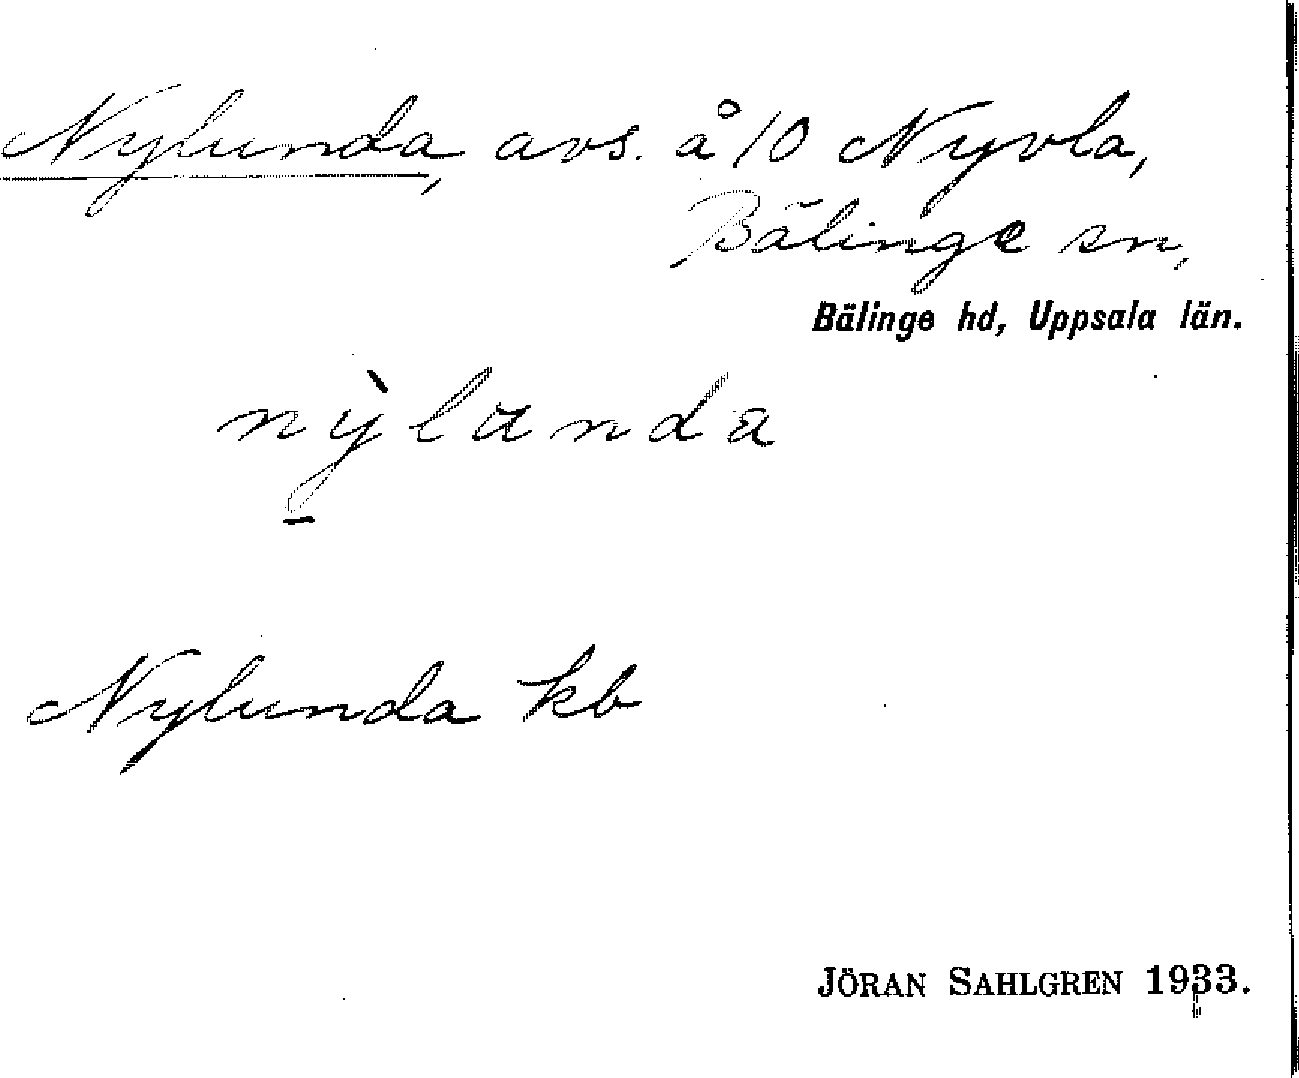 Nylunda, avs. å 10 Nyvla,
Bälinge sn,
Bälinge hd, Uppsala län.
nỳlunda
Nylunda kb
JÖRAN SAHLGREN 1933.